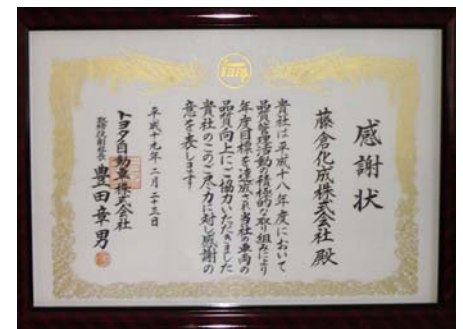 感謝状
藤倉化成株式会社殿
貴社は平成十八年度において
品質管理活動の積極的な取り組みにより
年度目標を達成され当社の車両の
品質向上にご協力いただきました
貴社のこのご尽力に対し感謝の
意を表します
平成十九年二月二十三日
トヨタ自動車株式会社
取締役副社長 豊田章男